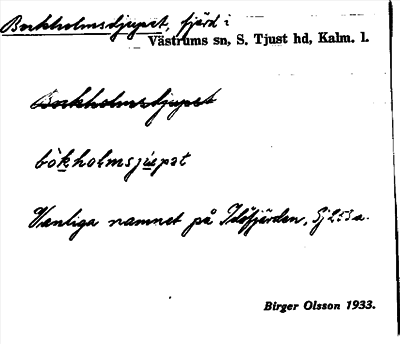 Bockholmsdjupet, fjärd i
Västrums sn, S. Tjust hd, Kalm. l.
Bockholmsdjupet
bòkholmsjupət
Vanliga namnet på Idöfjärden, Sj 253 a.
Birger Olsson 1933.